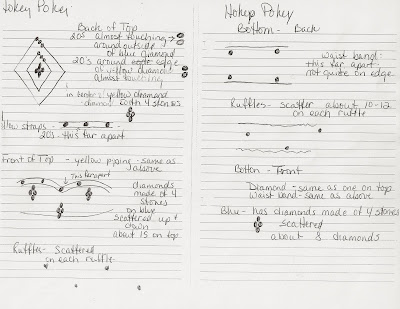 Hokey Pokey
Back of Top
20s almost touching →
around outside
of blue diamond
20's around edge
of yellow diamond
almost touching
in center of yellow diamond -
diamond with 4 stones
straps -
20s - this far apart
Front of Top - yellow piping - same as
above
This far apart
diamonds
made of 4
stones
on blue
scattered up +
down
about 15 on top
Ruffles - scattered
on each ruffle
Hokey Pokey
Bottom - Back
Waist band -
this far apart -
not quite on edge.
Ruffles - scatter about 10-12
on each ruffle
Bottom - Front
Diamond - same as one on top
Waist band - same as above
Blue - has diamonds made of 4 stones
scattered
about 8 diamonds